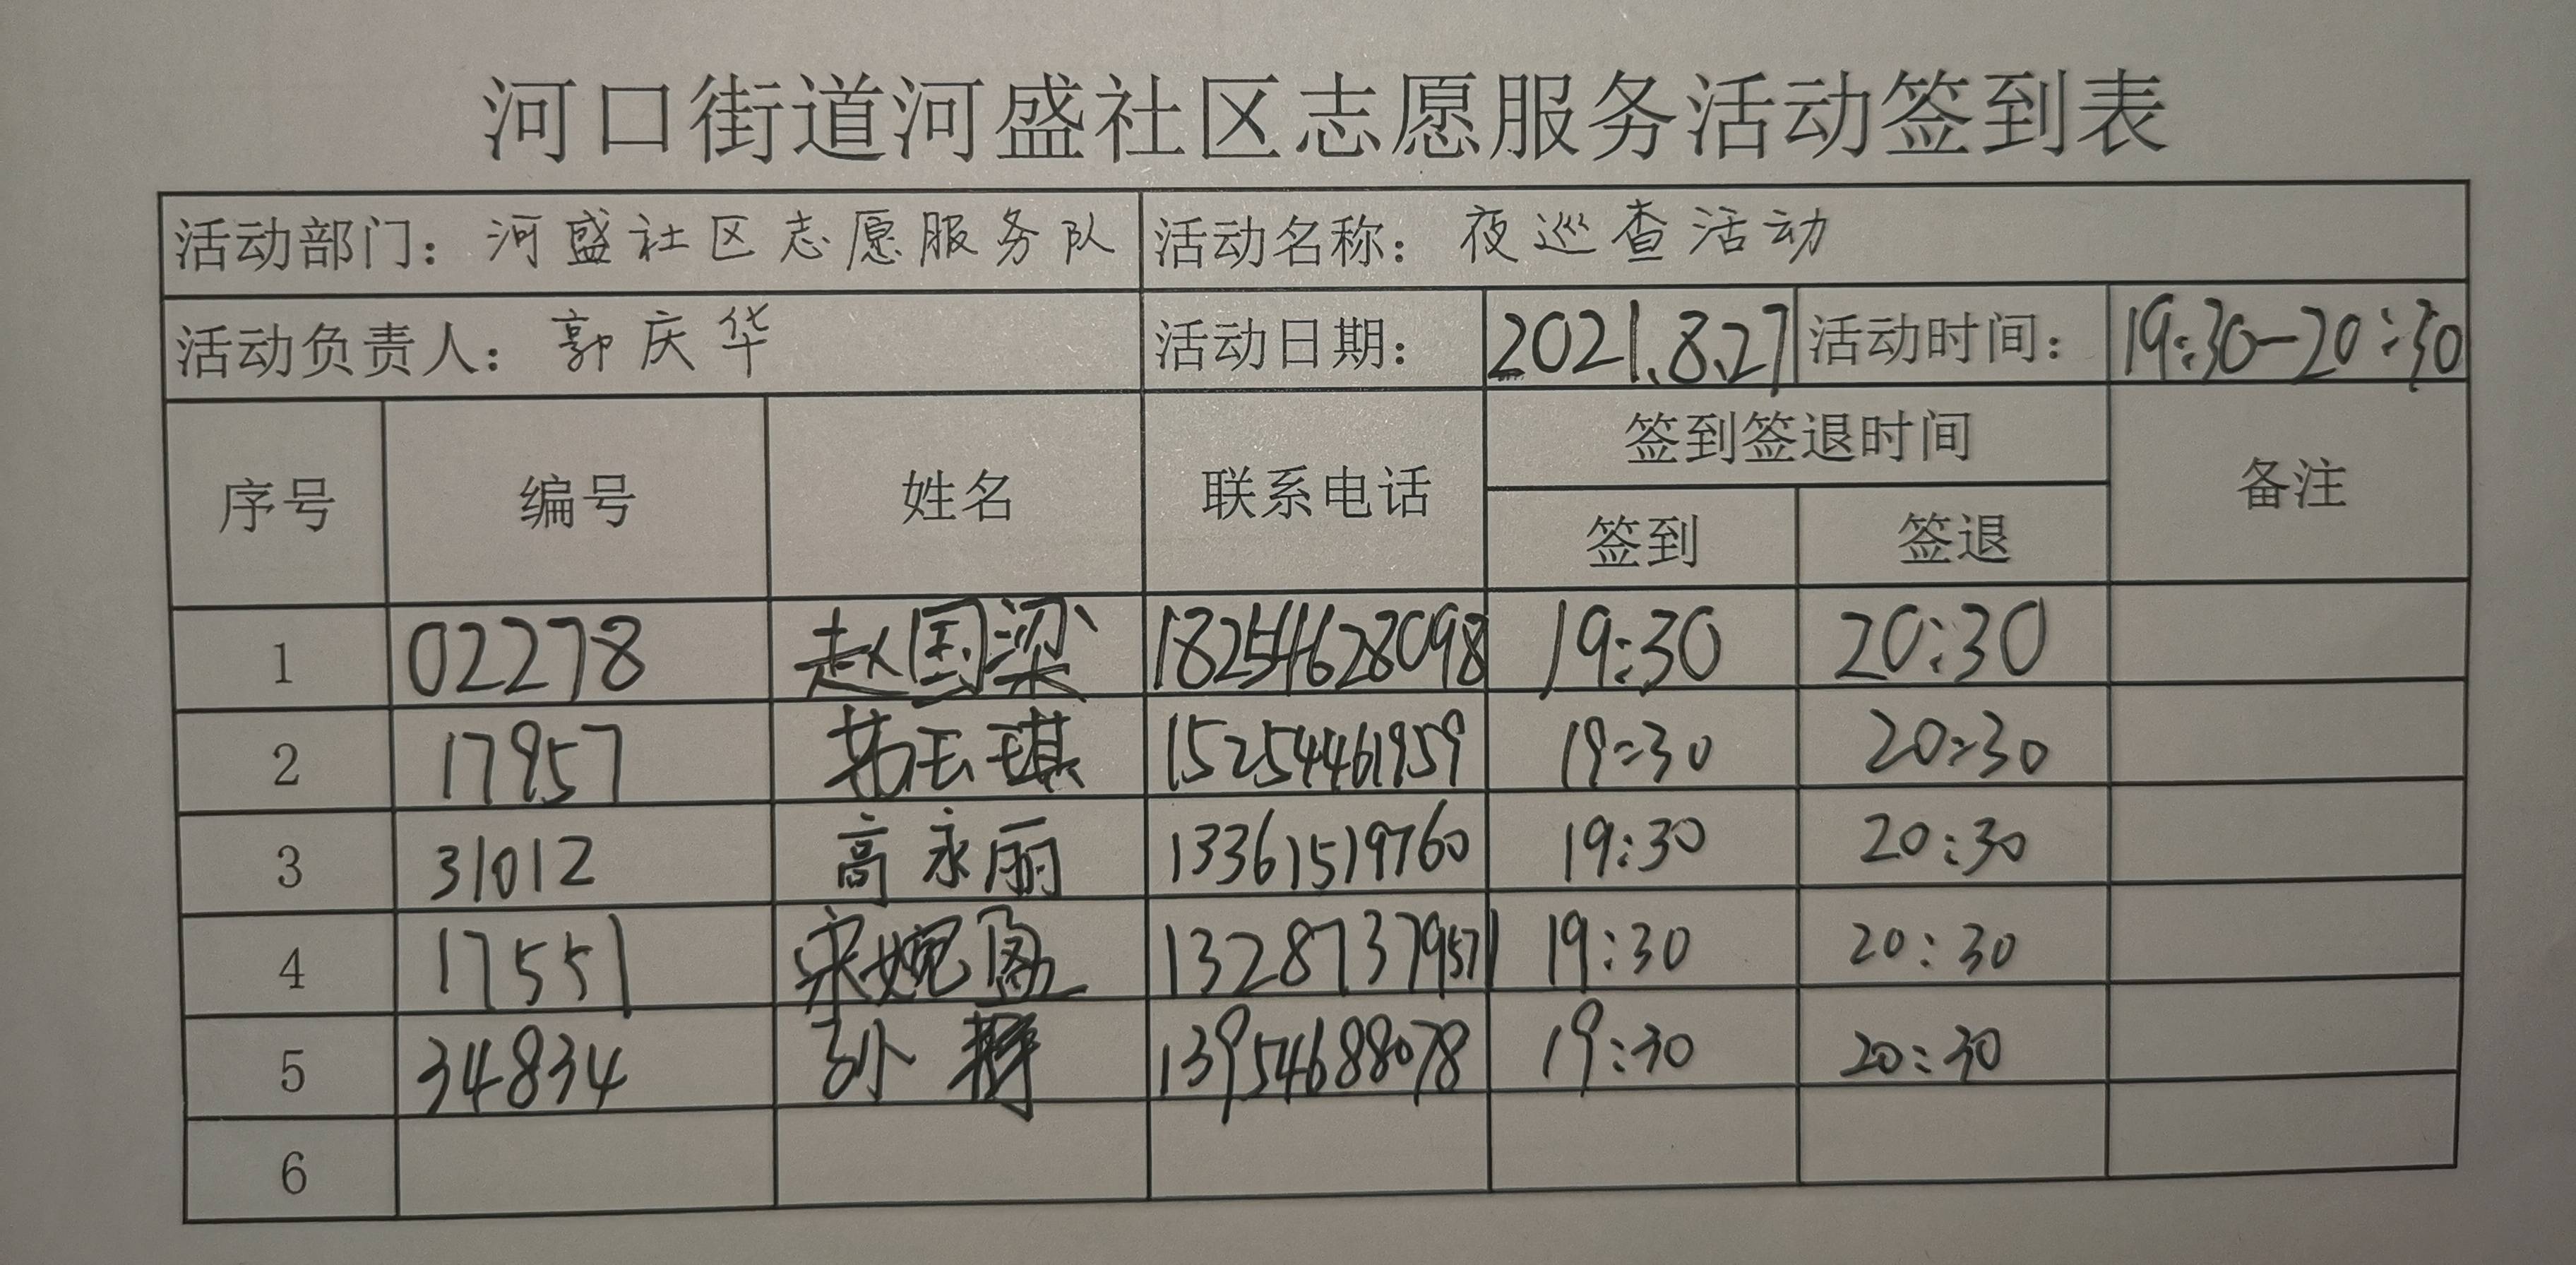 河口街道河盛社区志愿服务活动签到表
活动部门：河盛社区志愿服务队 活动名称：夜巡查活动
活动负责人：郭庆华 活动日期：2021.8.27 活动时间：19:30-20:30
序号 编号 姓名 联系电话 签到签退时间 备注
签到 签退
1 02278 赵国梁 18254628098 19:30 20:30
2 17957 玉琪 15254461959 19:30 20:30
3 31012 高永丽 13361519760 19:30 20:30
4 17551 宋婉盈 13287379571 19:30 20:30
5 34834 孙 13954688078 19:30 20:30
6